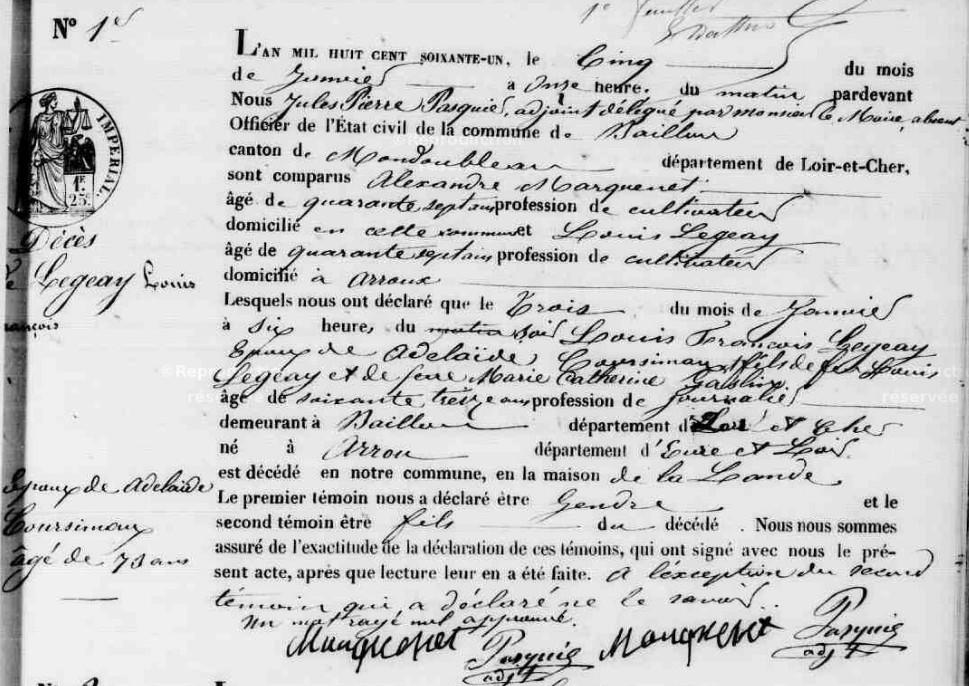 N° 1er
L'AN MIL HUIT CENT SOIXANTE-UN, le Cinq du mois
de Janvier a onze heure, du matin pardevant
Nous Jules Pierre Pasquier, adjoint délégué par monsieur le Maire, absent
Officier de l'État civil de la commune de Baillou
canton de Mondoubleau département de Loir-et-Cher,
sont comparus Alexandre Marquenet
âgé de quarante sept ans profession de cultivateur
domicilié en cette commune et Louis Legeay
âgé de quarante sept ans profession de cultivateur
domicilié à arrou
Lesquels nous ont déclaré que le Trois du mois de Janvier
à six heure, du matin soir Louis François Legeay
Epoux de Adelaïde Coursimau fils de feu Louis
Legeay et de feue Marie Catherine Gaslin
âgé de soixante treize ans profession de Journalier
demeurant à Baillou département d Loir et Cher
né à Arrou département d'Eure et Loir
est décédé en notre commune, en la maison de la Lande
Le premier témoin nous a déclaré être Gendre et le
second témoin être fils du décédé. Nous nous sommes
assuré de l'exactitude de la déclaration de ces témoins, qui ont signé avec nous le pré-
sent acte, après que lecture leur en a été faite. A l'éxception du second
témoin qui a déclaré ne le savoir.
Un mot rayé nul approuvé.
Marquenet Pasquier Marquenet Pasquier
adjt adjt
IMPERIAL.
1F.
25c.
Décès
de Legeay Louis
françois
Epoux de Adelaïde
Coursimau
âgé de 73 ans